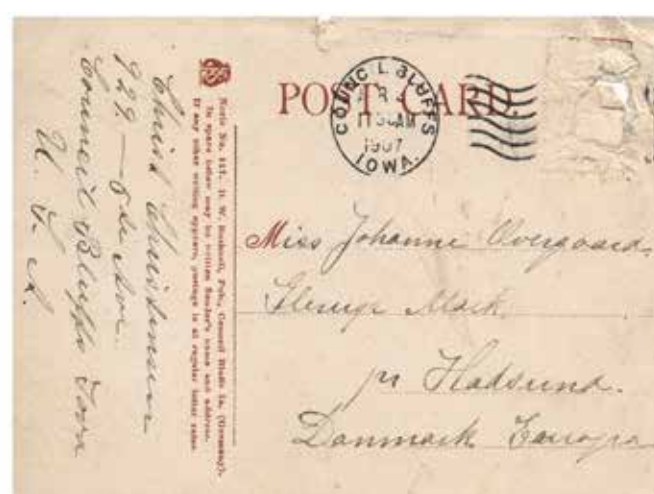 POST CARD.
COUNCIL BLUFFS
IOWA.
1907
Miss Johanne Overgaard,
Mark
pr Hadsund.
Danmark Europa
Series No. 117. D. W. Bushnell, Pub., Council Bluffs Ia. (Germany).
In space below may be written Sender's name and address.
If any other writing appears, postage is at regular letter rates.
Christ Christensen
929 —
Council Bluffs Iowa
U. S. A.